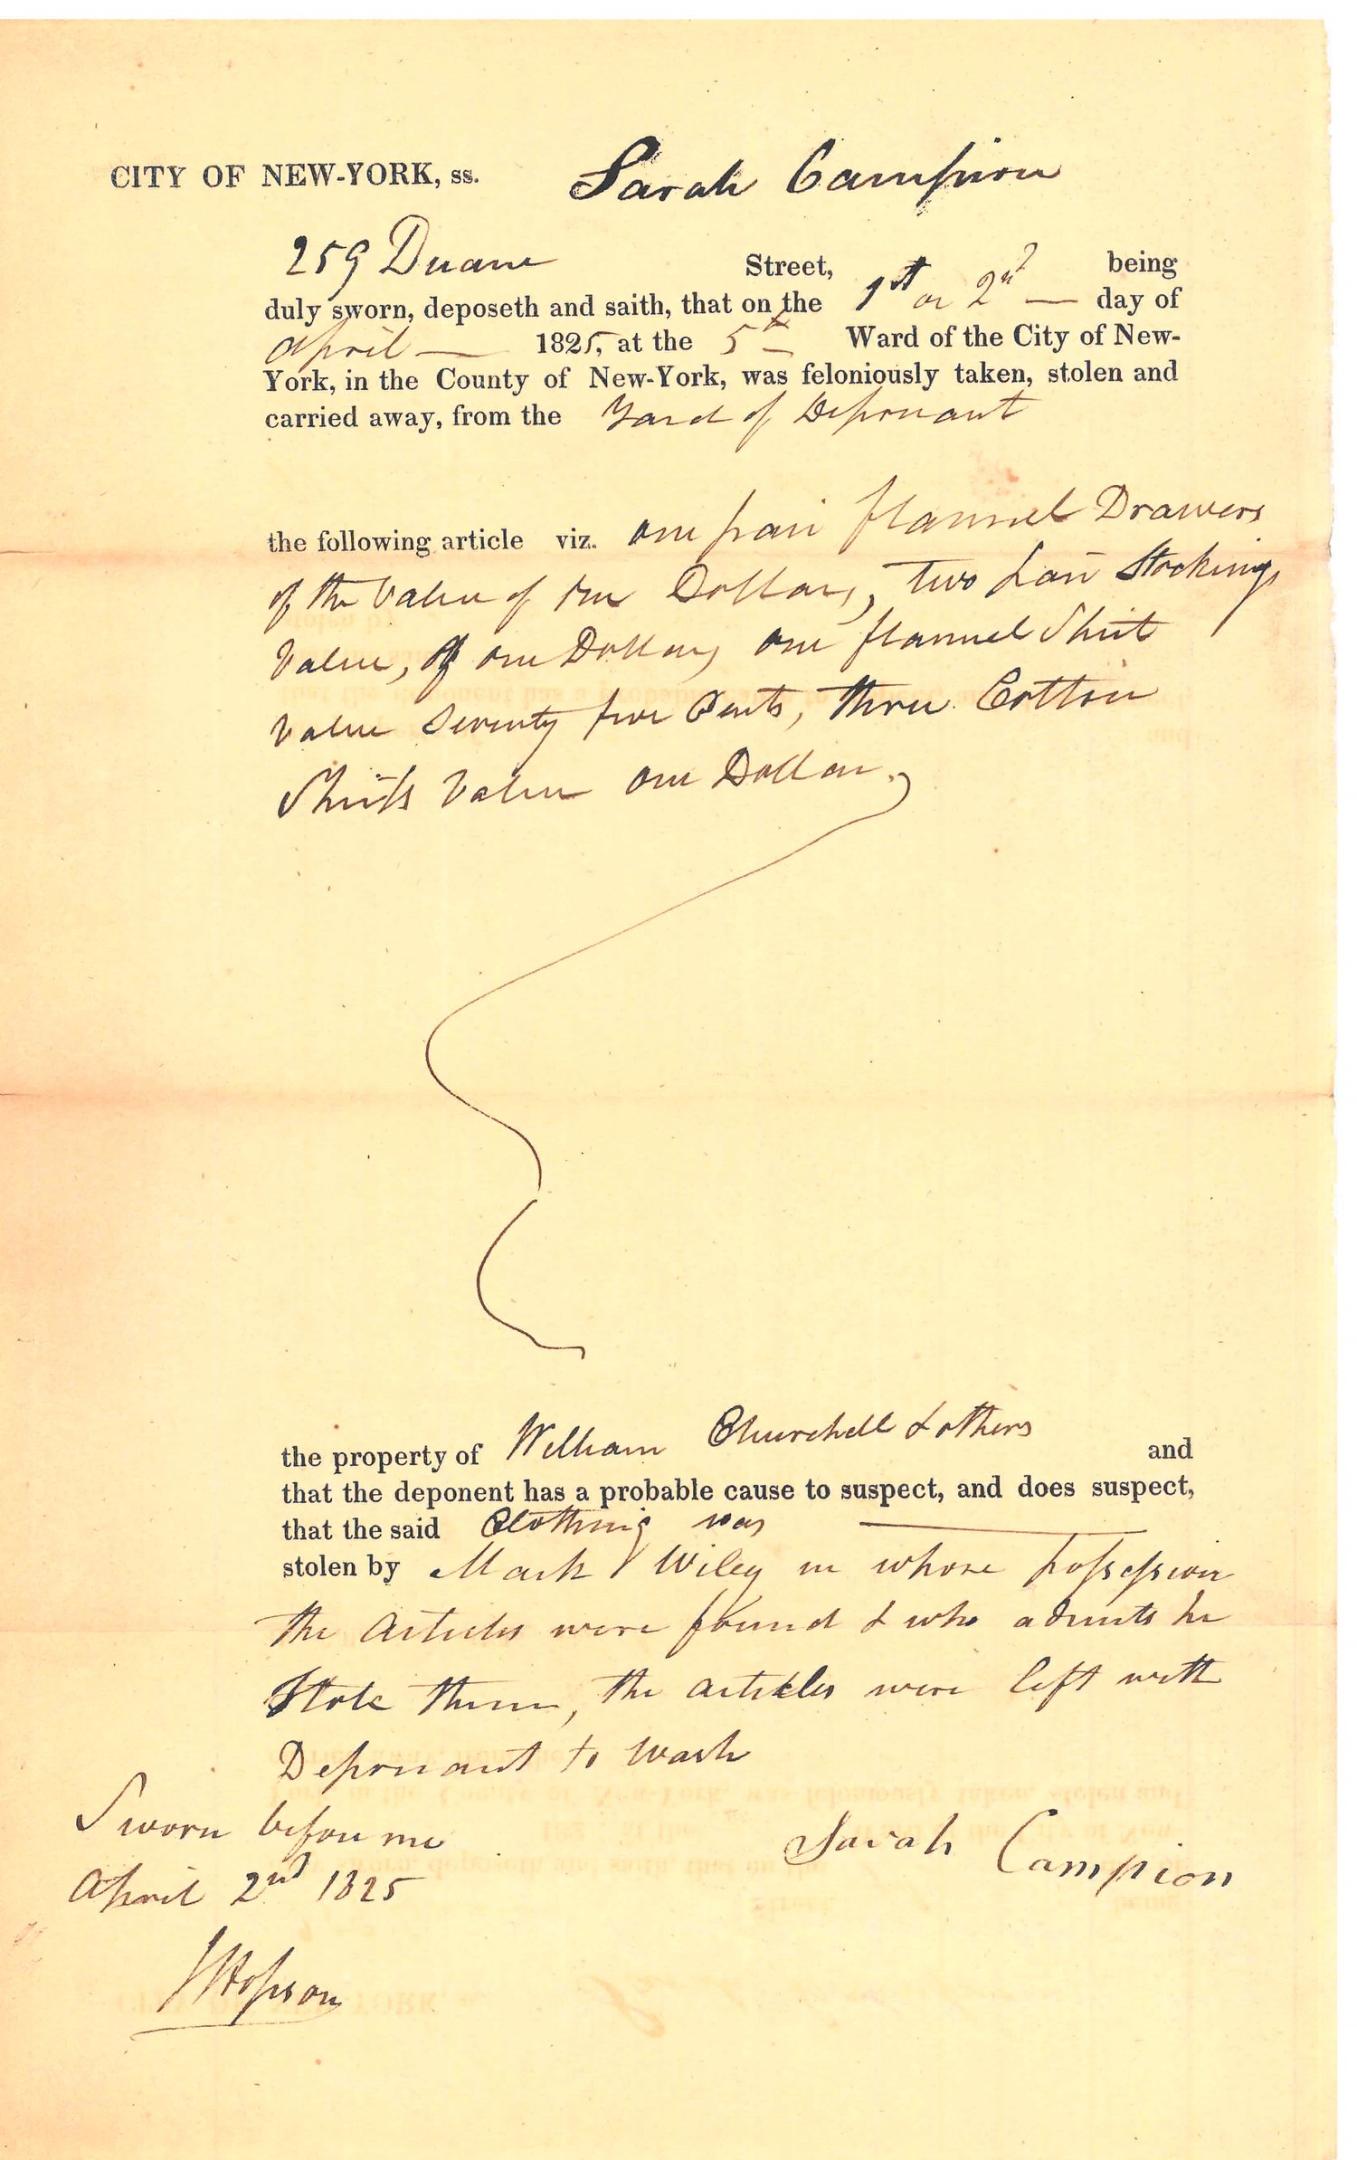 CITY OF NEW-YORK, ss. Sarah Campion
259 Duane Street, 1st or 2nd — being
duly sworn, deposeth and saith, that on the day of
April — 1825, at the 5th Ward of the City of New-
York, in the County of New-York, was feloniously taken, stolen and
carried away, from the Yard of Deponant
the following article viz. one pair flannel Drawers
of the Value of one Dollar, two pair Stockings
Value, of one Dollar, one flannel Shirt
Value Seventy five Cents, three Cotton
Shirts Value one Dollar.
the property of William Churchell & others and
that the deponent has a probable cause to suspect, and does suspect,
that the said Clothing was
stolen by Mark Wiley in whose possession
the Articles were found & who admits he
Stole them, the articles were left with
Deponant to Wash
Sworn before me
April 2nd 1825
Sarah Campion